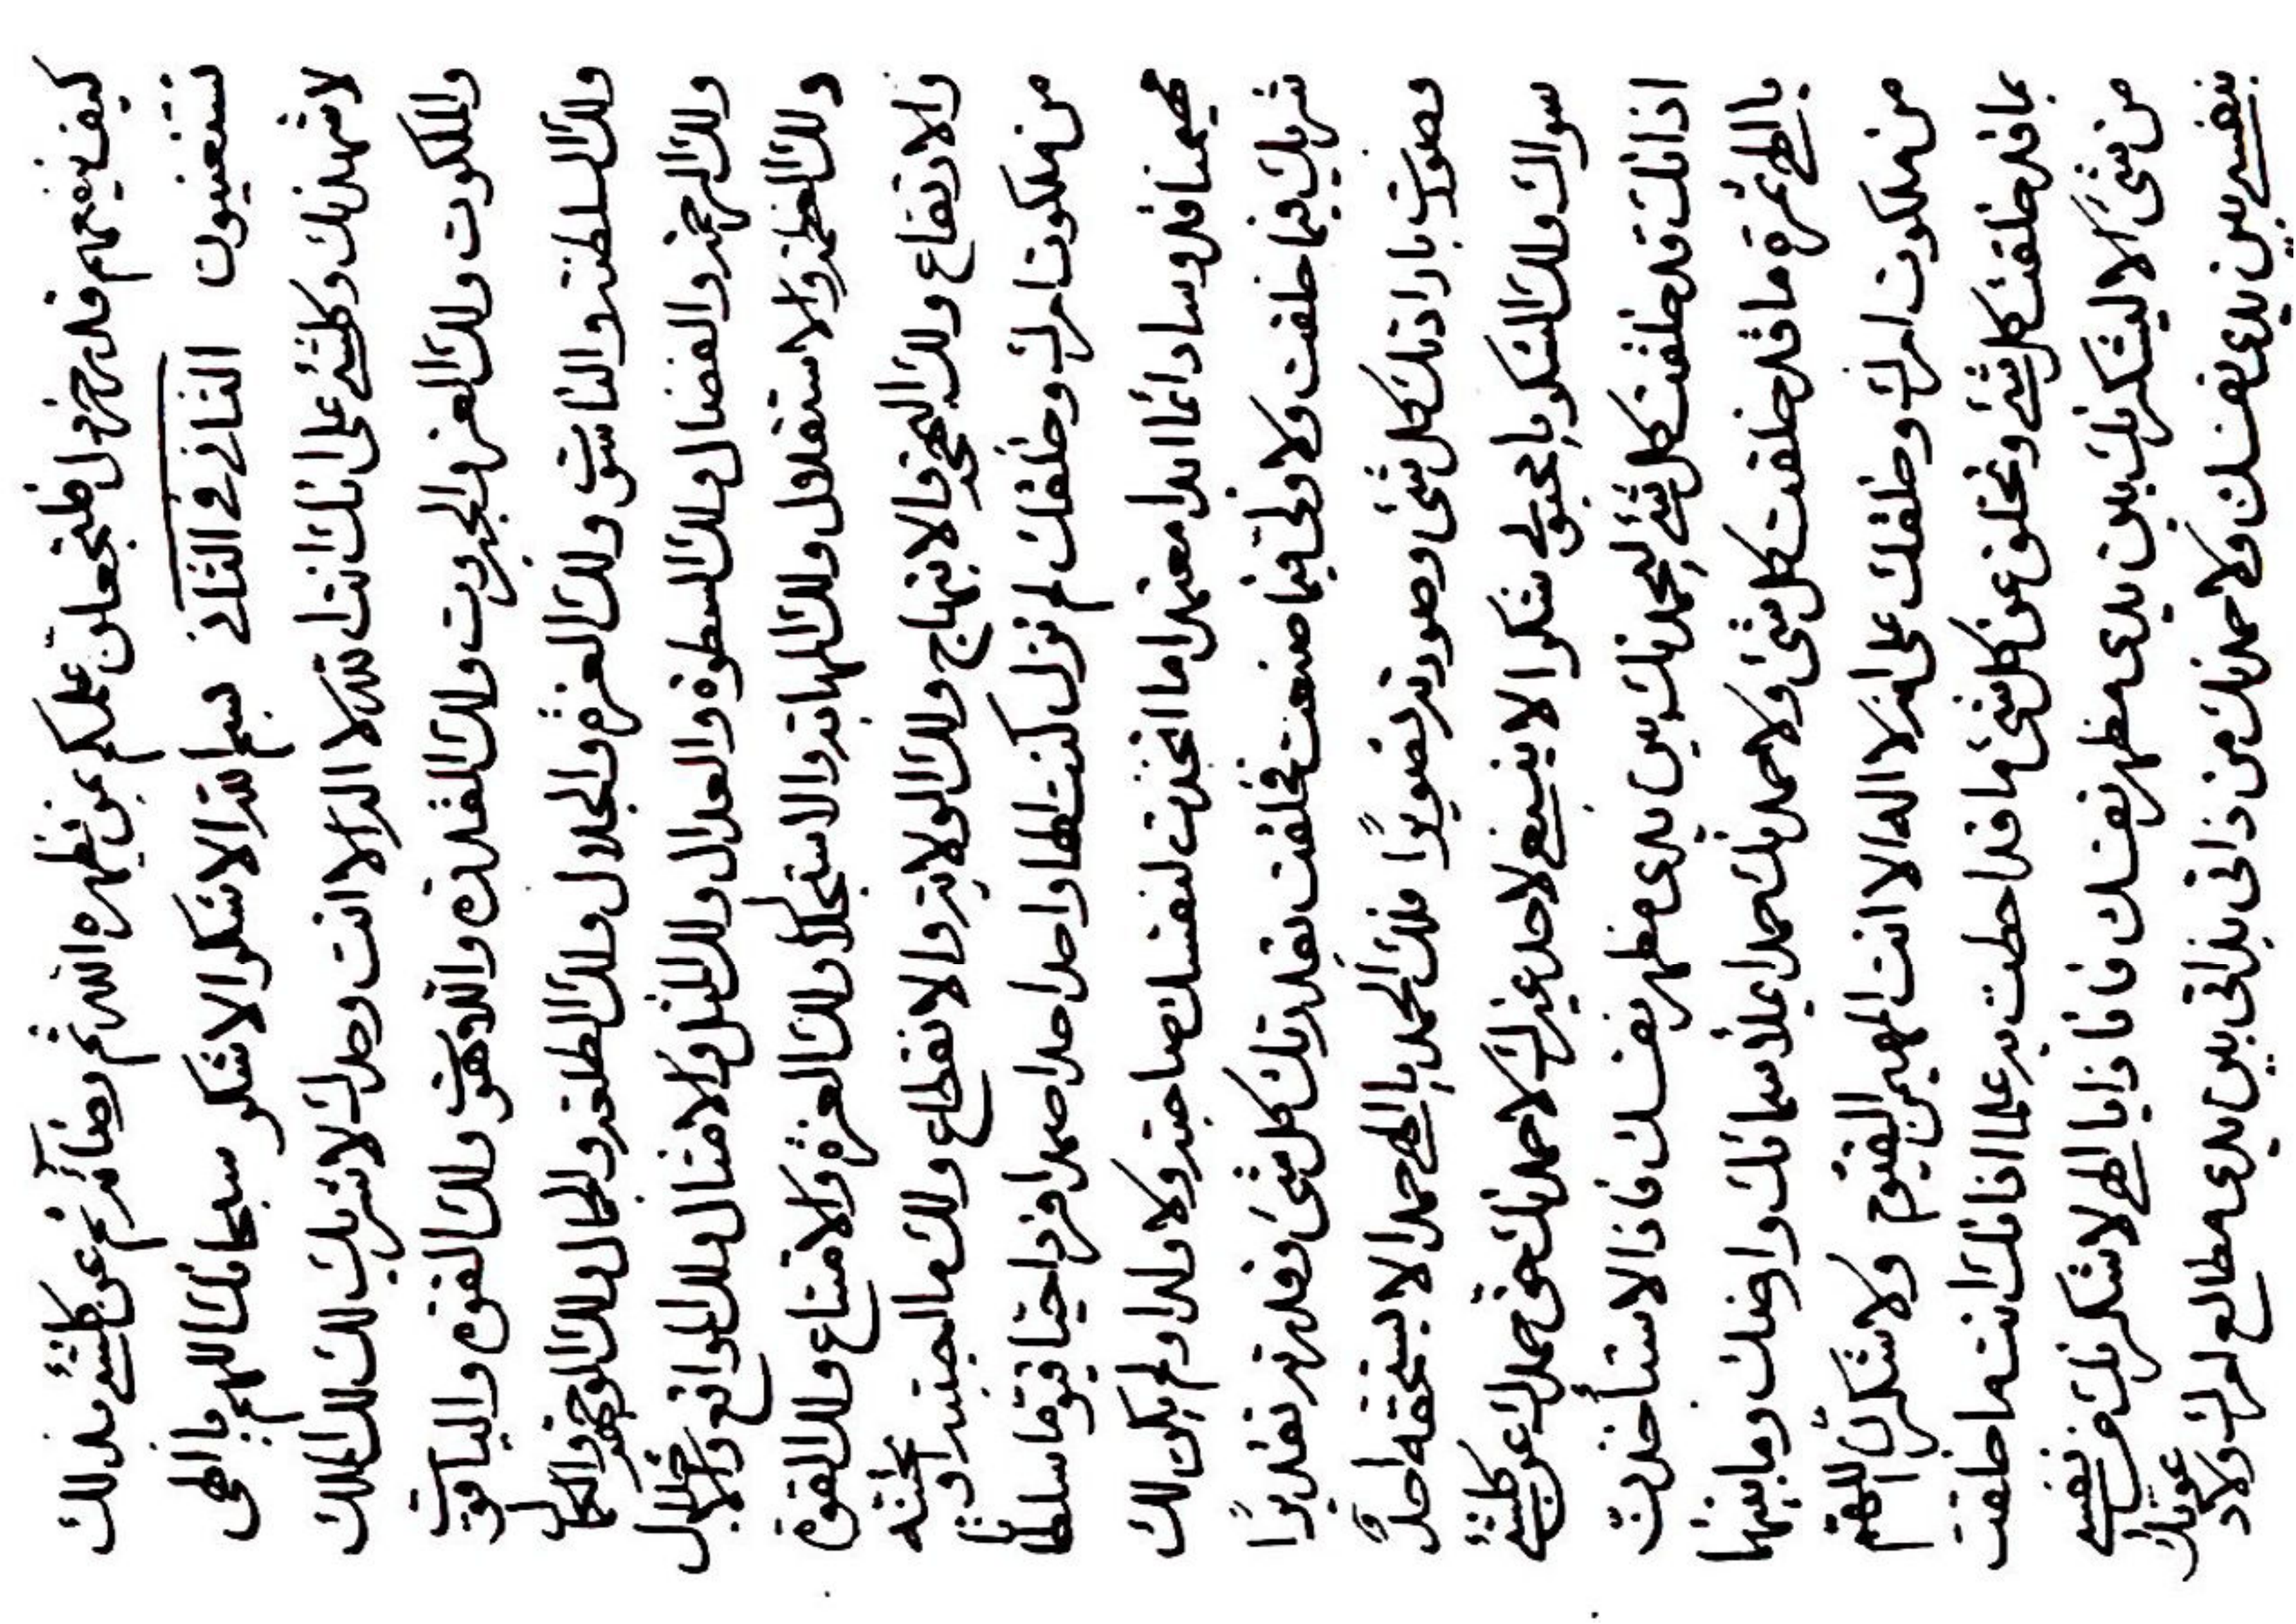 كيف ينفعهم قدر خردل فلتجعلن علكم بمن يظهره الله ثم رضائه ثم عن كلشئ بذلك
تستغنيون الثاني في الثاني بسم الله الاشكر الاشكر سبحانك اللهم يا الهى
لاشهدنك وكلشئ على انك انت الله لا اله الا انت وحدك لا شريك لك لك الملك
والملكوت ولك العز والجبروت ولك القدرة واللاهوت ولك القوة والياقوت
ولك السلطنة والناسوت ولك العزة والجلال ولك الطلعة والجمال ولك الوجهة والكمال
ولك الرحمة والفضال ولك السطوة والعدال ولك المثل والامثال ولك المواقع والاجلال
ولك العظمة والاستقلال ولك المهابة والاستجلال ولك العزة والامتناع ولك القوة
والارتفاع ولك البهجة والابتهاج ولك الولاية والانقطاع ولك ما احببته او تحبنه
من ملكوت امرك وخلقك لم تزل كنت الها واحدا احدا صمدا فردا حيا قيوما سلطانا
مهيمنا قدوسا دائما ابدا معتمدا ما اتخذت لنفسك صاحبة ولا ولدا ولم يكن لك
شريك فيما خلقت ولا ولى فيما صنعت فخلقت بقدرتك كل شئ وقدرته تقديرًا
وصورت بارادتك كل شئ وصورته تصويرًا فلك الحمد يا الهى حمدا لا يستحقه احدٌ
سواك ولك الشكر يا محبوبى شكرا لا ينبغى لاحد غيرك لاحمدنك حق حمدك عن كلشئ
اذ انك قد خلقت كل شئ ليحمدنك بين يدى مظهر نفسك فاذا لاستأخذت
يا الهى ثمرة ما قد خلقت كل شئ ولاحمدنك حمدا يملأ سمائك وارضك وما بينهما
من ملكوت امرك وخلقك على انه لا اله الا انت المهيمن القيوم ولاشكرنك اللهم
بما قد خلقت كل شئ وتخلق عن كل شئ ما قد احطت به علما اذ انك انت ما خلقت
من شئ الا ليشكرنك بين يدى مظهر نفسك فاذا يا الهى لاشكرنك من نفسى
بنفسى بين يدى نفسك ولاحمدنك من ذاتى بذاتى بين يدى مطالع امرك ولادعونك